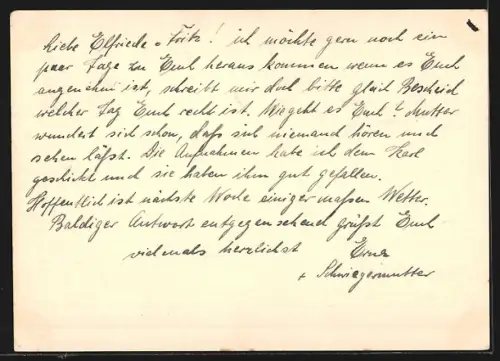 Liebe Elfriede u. Fritz! ich möchte gern noch ein
paar Tage zu Euch heraus kommen wenn es Euch
angenehm ist, schreibt mir doch bitte gleich Bescheid
welcher Tag Euch recht ist. Wie geht es Euch? Mutter
wundert sich schon, daß sich niemand hören und
sehen läßt. Die Aufnahmen habe ich dem Karl
geschickt und sie haben ihm gut gefallen.
Hoffentlich ist nächste Woche einigermaßen Wetter.
Baldiger Antwort entgegensehend grüßt Euch
vielmals herzlichst Erna
+ Schwiegermutter